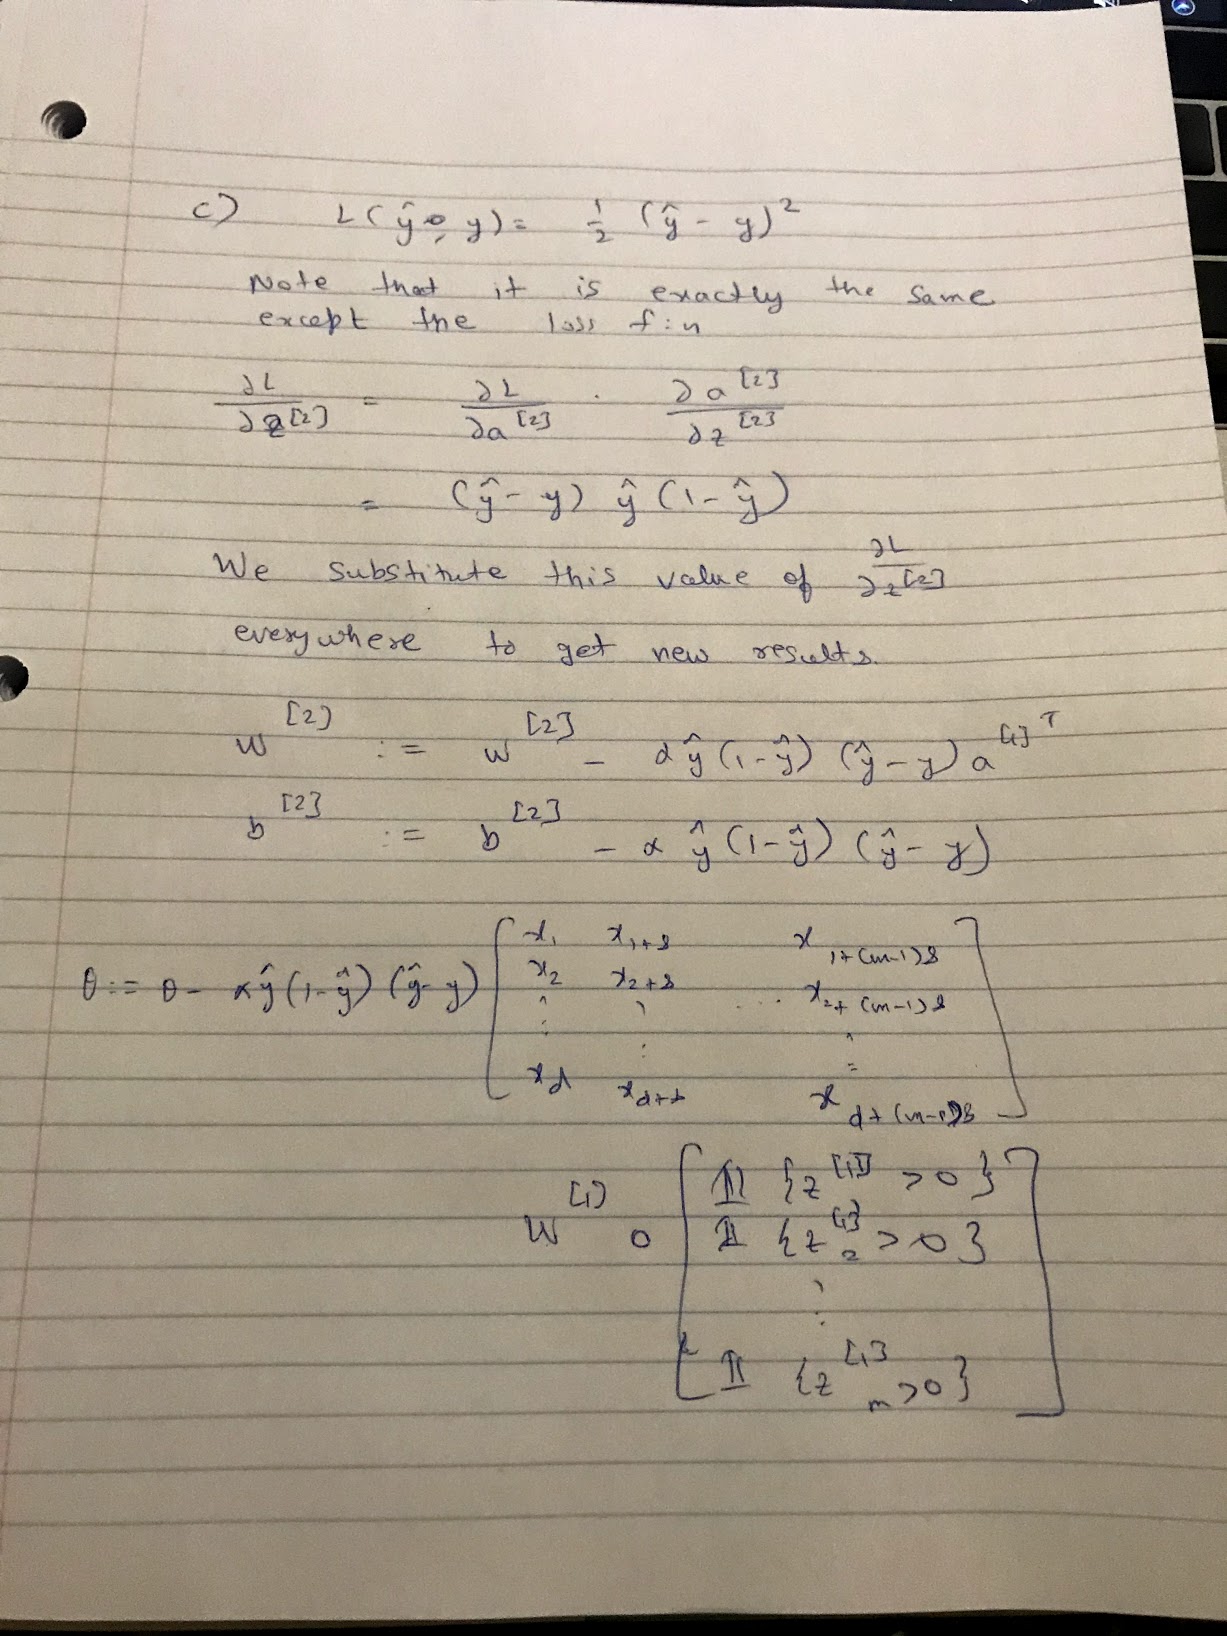 c) L(ŷ, y) = 1/2 (ŷ - y)²
Note that it is exactly the same
except the loss f:n
∂L/∂z^[2] = ∂L/∂a^[2] · ∂a^[2]/∂z^[2]
= (ŷ - y) ŷ (1 - ŷ)
We substitute this value of ∂L/∂z^[2]
everywhere to get new results.
W^[2] := W^[2] - α ŷ (1 - ŷ) (ŷ - y) a^[1]^T
b^[2] := b^[2] - α ŷ (1 - ŷ) (ŷ - y)
θ := θ - α ŷ (1 - ŷ) (ŷ - y) [ x_1 x_{1+s} x_{1+(m-1)s}
x_2 x_{2+s} ... x_{2+(m-1)s}
⋮ ⋮ ⋮
x_d x_{d+s} x_{d+(m-1)s} ]
W^[1] o [ 𝟙 {z^[1]_1 > 0}
𝟙 {z^[1]_2 > 0}
⋮
𝟙 {z^[1]_m > 0} ]